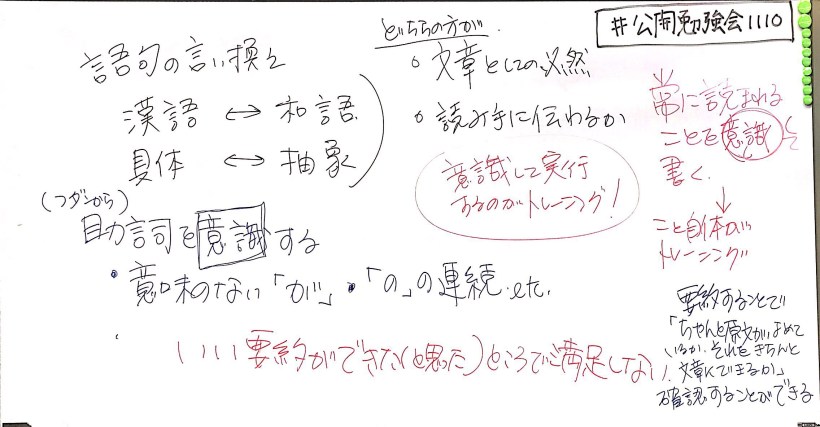 #公開勉強会1110
語句の言い換え
漢語 ↔ 和語
具体 ↔ 抽象
どちらの方が
○ 文章としての必然
○ 読み手に伝わるか
意識して実行
するのがトレーニング!
(フダンから)
助詞を意識する
・意味のない「が」・「の」の連続 etc.
・いい要約ができた(と思った)ところで満足しない
常に読まれる
ことを意識して
書く
↓
こと自体がトレーニング
要約することで
「ちゃんと原文がよめて
いるか、それをきちんと
文章にできるか」
確認することができる